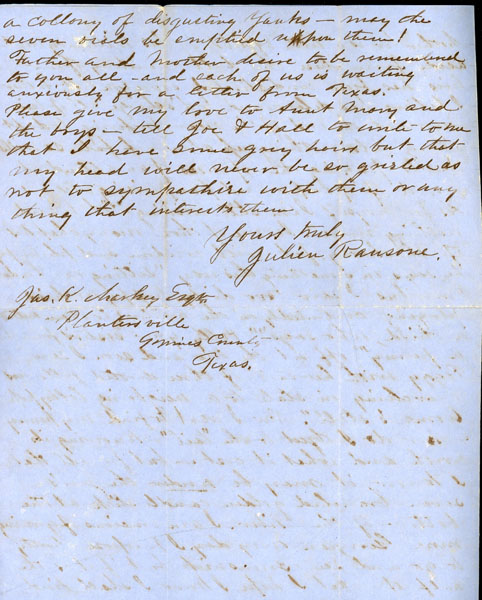 a collony of disgusting Yanks — may the
seven vials be emptied upon them!
Father and Mother desire to be remembered
to you all - and each of us is waiting
anxiously for a letter from Texas.
Please give my love to Aunt Mary and
the boys — tell Joe & Hall to write to me
that I have some grey hairs but that
my head will never be so grisled as
not to sympathise with them or any
thing that interests them
Yours truly
Julien Ransone.
Jas. K. Esqr
Plantersville
Grimes County
Texas.